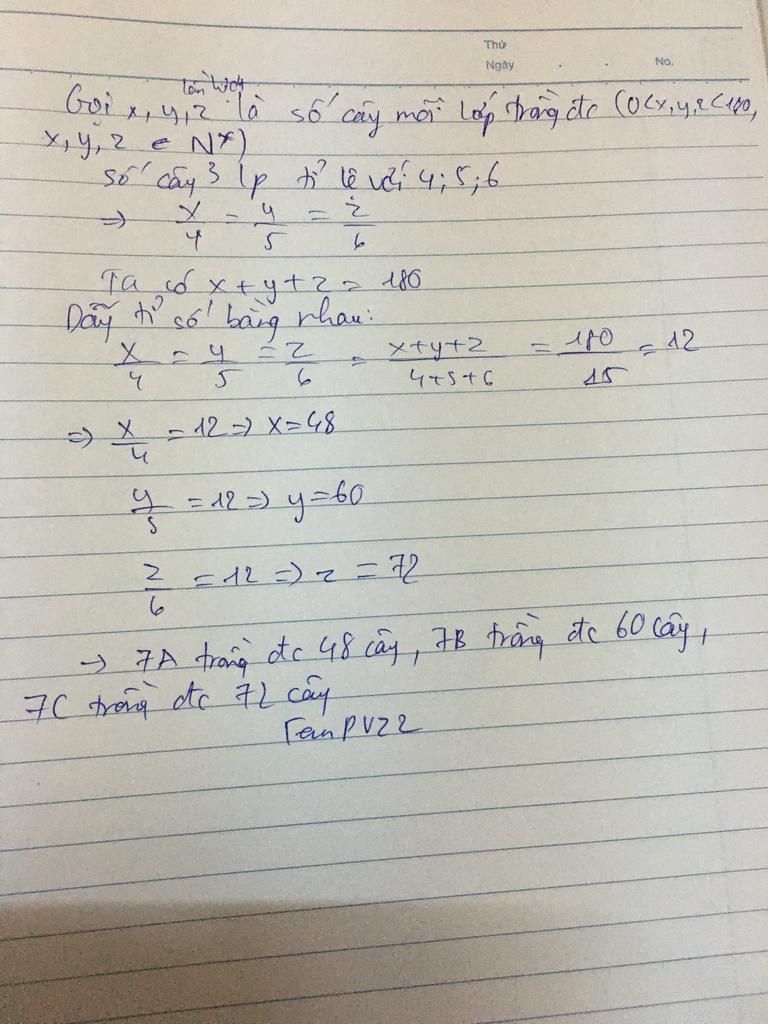 Thứ
Ngày . . No.
lần lượt
Gọi x, y, z là số cây mỗi lớp trồng đc (0<x,y,z<180,
x, y, z ∈ N*)
Số cây 3 lp tỉ lệ với 4; 5; 6
=> x/4 = y/5 = z/6
Ta có x + y + z = 180
Dãy tỉ số bằng nhau:
x/4 = y/5 = z/6 = x+y+z/4+5+6 = 180/15 = 12
=> x/4 = 12 => x = 48
y/5 = 12 => y = 60
z/6 = 12 => z = 72
-> 7A trồng đc 48 cây, 7B trồng đc 60 cây,
7C trồng đc 72 cây